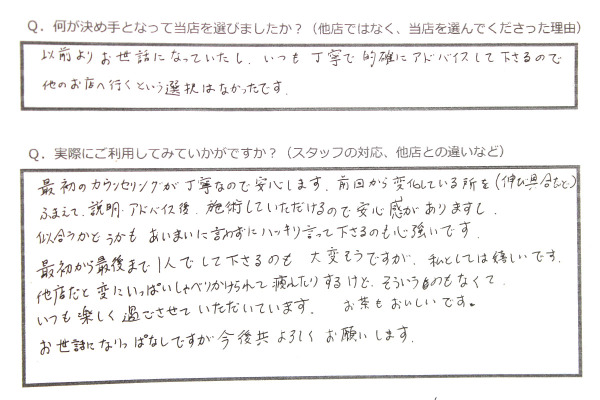 Q．何が決め手となって当店を選びましたか？（他店ではなく、当店を選んでくださった理由）
以前よりお世話になっていたし、いつも丁寧で的確にアドバイスして下さるので
他のお店へ行くという選択はなかったです.
Q．実際にご利用してみていかがですか？（スタッフの対応、他店との違いなど）
最初のカウンセリングが丁寧なので安心します. 前回から変化している所を(伸び具合など)
ふまえて、説明・アドバイス後、施術していただけるので安心感がありますし、
似合うかどうかも あいまいに言わずにハッキリ言って下さるのも心強いです.
最初から最後まで1人でして下さるのも 大変そうですが、私としては嬉しいです.
他店だと変にいっぱいしゃべりかけられて疲れたりするけど、そういうのもなくて、
いつも楽しく過ごさせていただいています. お茶もおいしいです。
お世話になりっぱなしですが今後共よろしくお願いします.